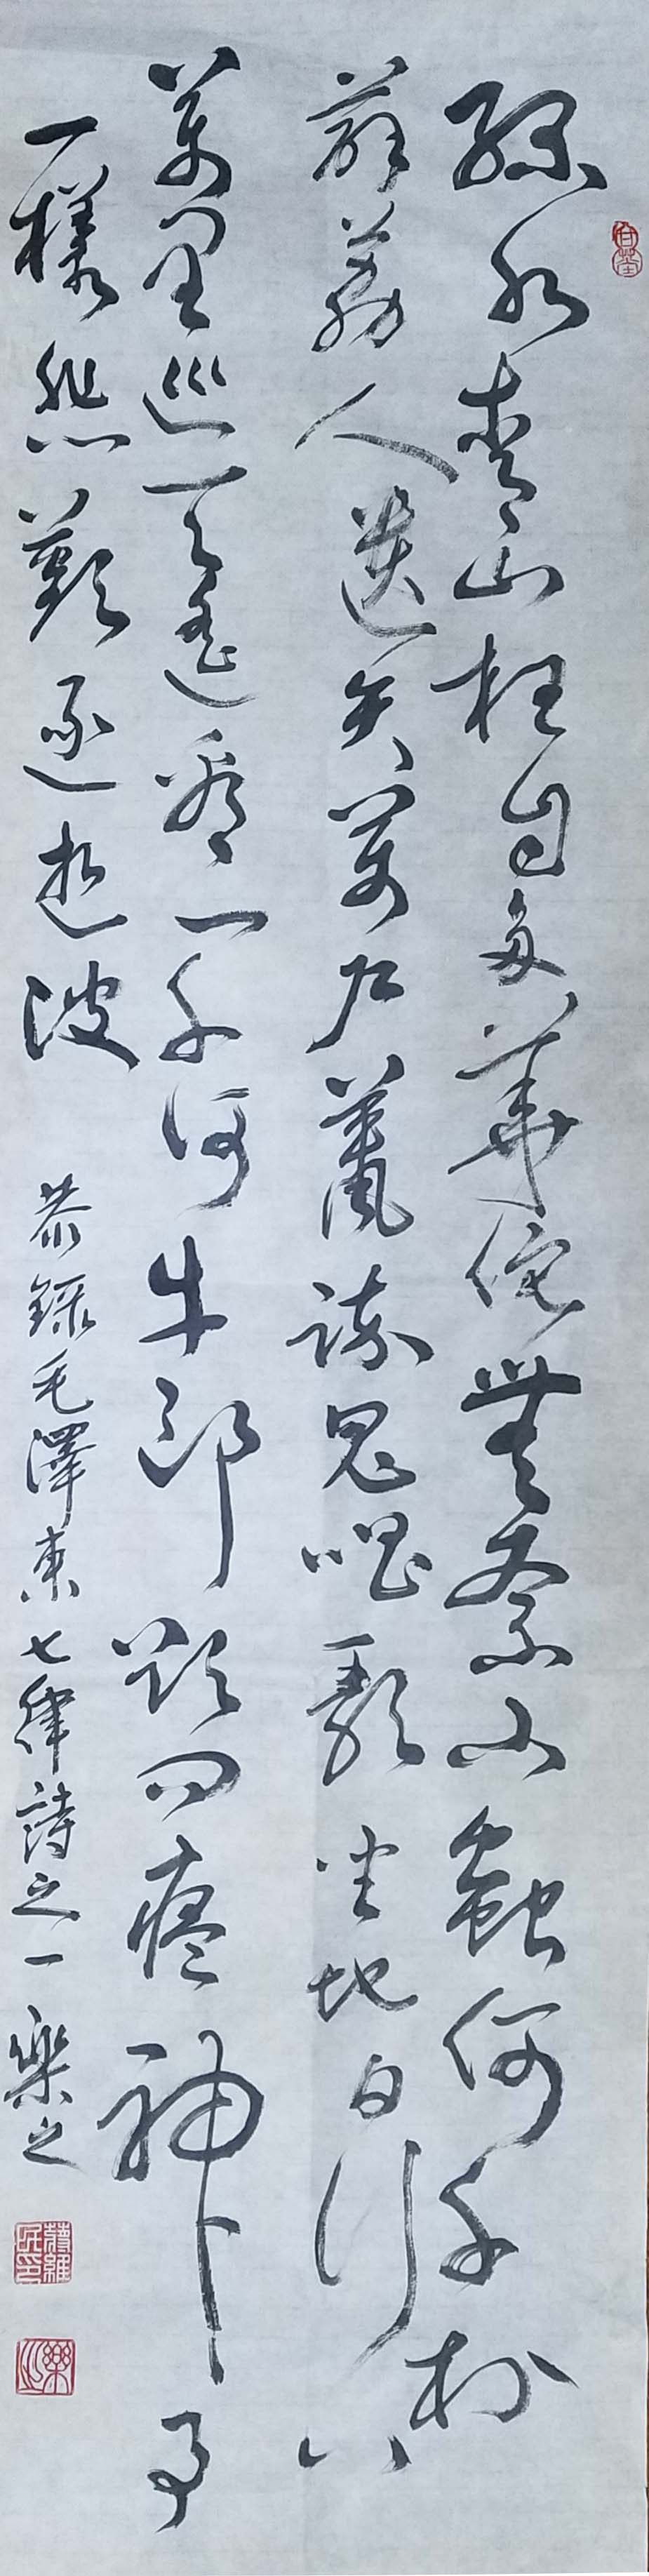 綠水青山枉自多華佗無奈小蟲何千村
薜荔人遺矢萬戶蕭疏鬼唱歌坐地日行八
萬里巡天遙看一千河牛郎欲問瘟神事
一樣悲歡逐逝波
恭錄毛澤東七律詩之一 樂之
樂之